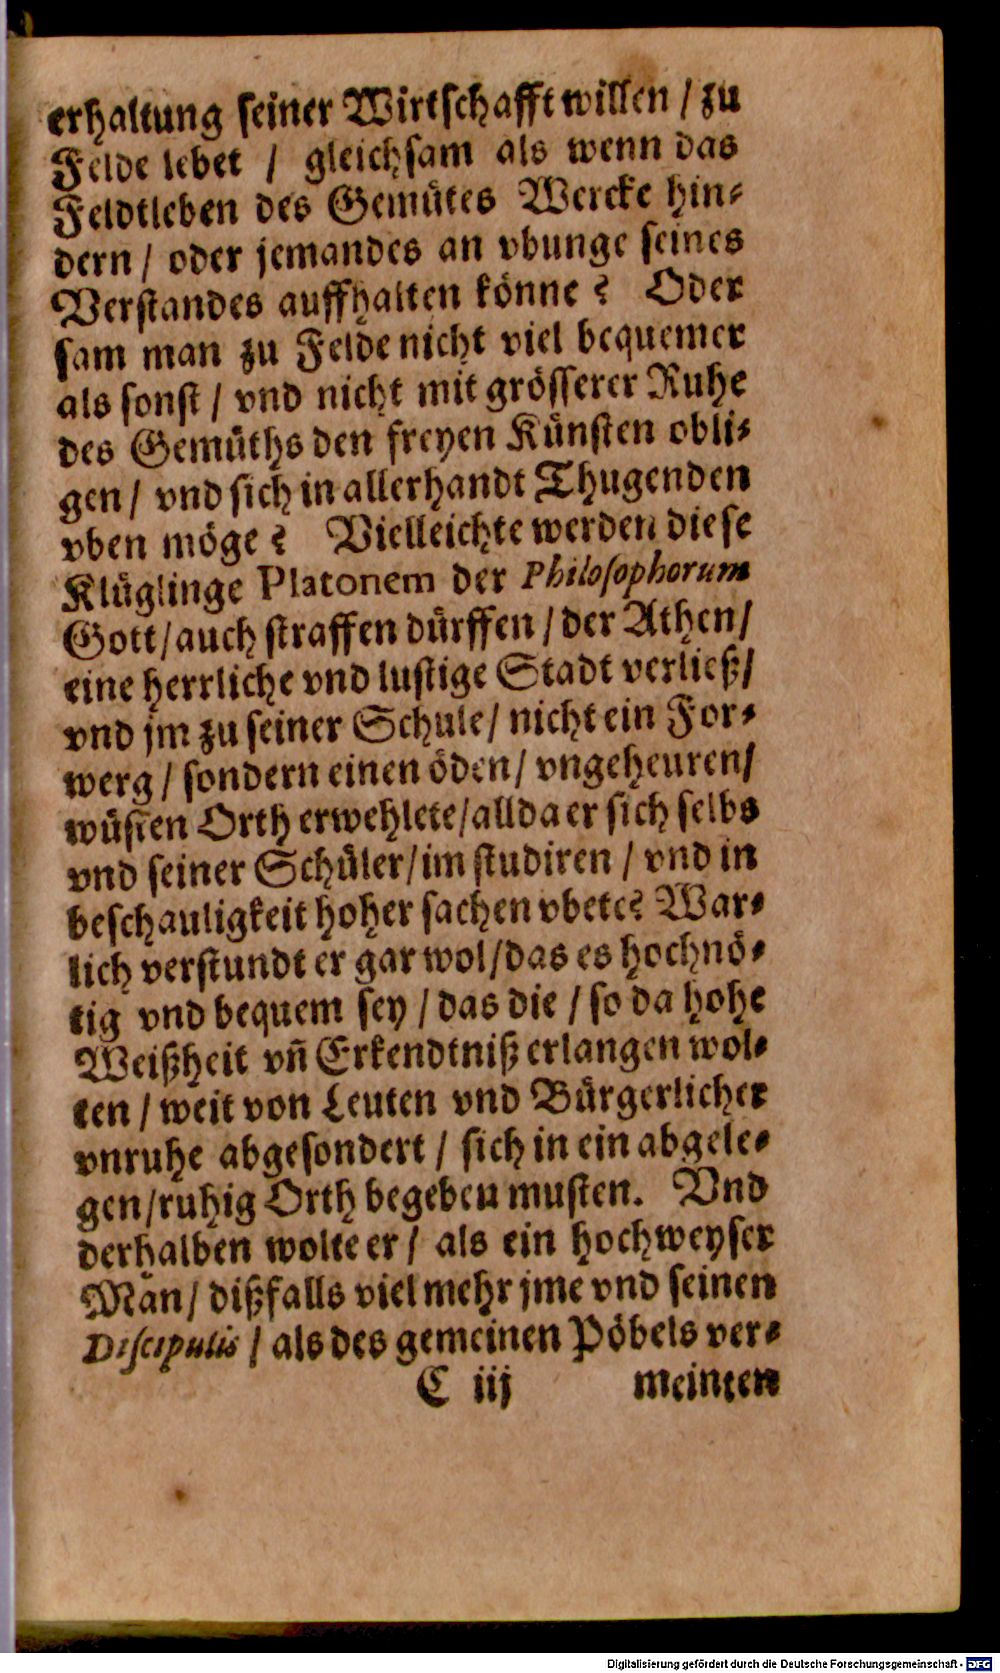 erhaltung seiner Wirtschafft willen / zu
Felde lebet / gleichsam als wenn das
Feldtleben des Gemütes Wercke hin-
dern / oder jemandes an vbunge seines
Verstandes auffhalten könne? Oder
sam man zu Felde nicht viel bequemer
als sonst / vnd nicht mit grösserer Ruhe
des Gemüths den freyen Künsten obli-
gen / vnd sich in allerhandt Thugenden
vben möge? Vielleichte werden diese
Klüglinge Platonem der Philosophorum
Gott / auch straffen dürffen / der Athen /
eine herrliche vnd lustige Stadt verließ /
vnd jm zu seiner Schule / nicht ein For-
werg / sondern einen öden / vngeheuren /
wüsten Orth erwehlete / allda er sich selbs
vnd seiner Schüler / im studiren / vnd in
beschauligkeit hoher sachen vbete? War-
lich verstundt er gar wol / das es hochnö-
tig vnd bequem sey / das die / so da hohe
Weißheit vñ Erkendtniß erlangen wol-
ten / weit von Leuten vnd Bürgerlicher
vnruhe abgesondert / sich in ein abgele-
gen / ruhig Orth begeben musten. Vnd
derhalben wolte er / als ein hochweyser
Mañ / dißfalls viel mehr jme vnd seinen
Discipulis / als des gemeinen Pöbels ver-
C iij meinten
Digitalisierung gefördert durch die Deutsche Forschungsgemeinschaft - DFG